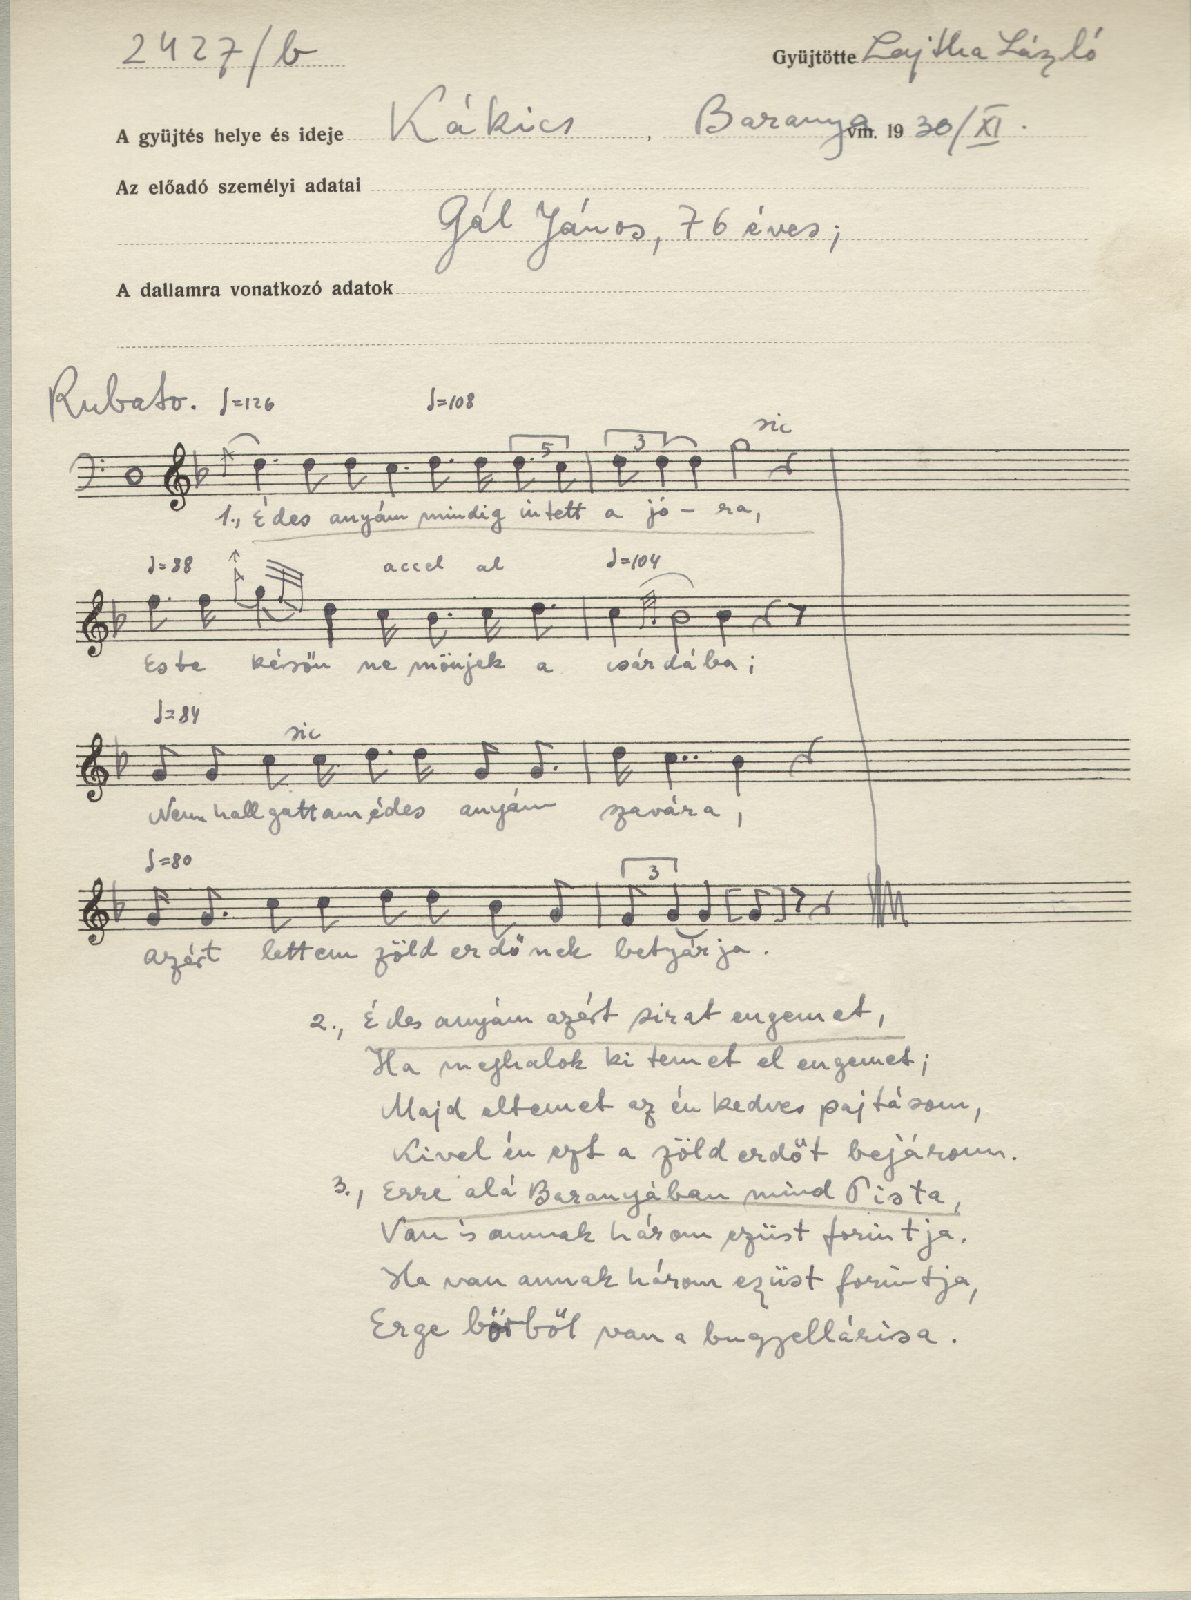 2427/b
Gyüjtötte Lajtha László
A gyüjtés helye és ideje Kákics, Baranya vm. 1930/XI.
Az előadó személyi adatai
Gál János, 76 éves;
A dallamra vonatkozó adatok
Rubato. ♩=126 ♩=108
sic
5 3
1., Édes anyám mindig intett a jó - ra,
♩=88 accel al ♩=104
Este későn ne mönjek a csárdába;
♩=84
sic
Nem hallgattam édes anyám szavára,
♩=80
3
azért lettem zöld erdőnek betyárja.
2., Édes anyám azért sirat engemet,
Ha meghalok ki temet el engemet;
Majd eltemet az én kedves pajtásom,
Kivel én ezt a zöld erdőt bejárom.
3., Erre alá Baranyában mind Pista,
Van is annak három ezüst forintja.
Ha van annak három ezüst forintja,
Erge bőrből van a bugyellárisa.